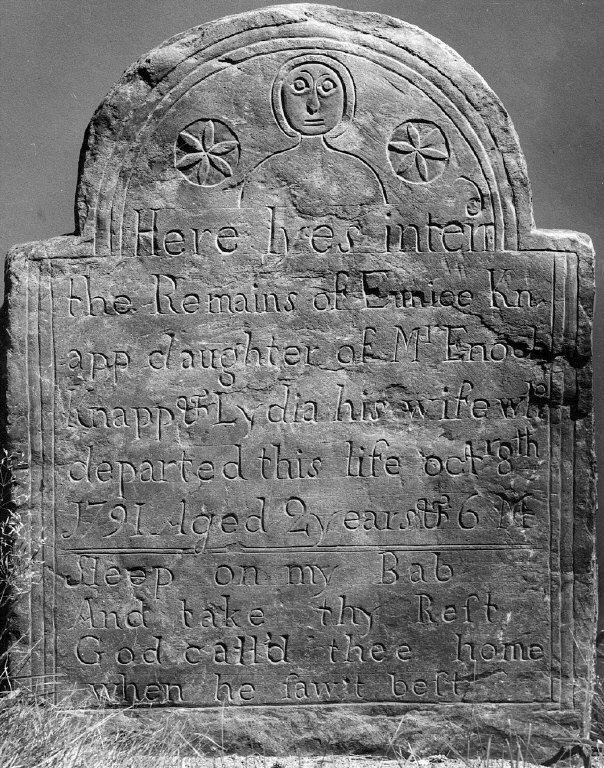 Here lyes inter'd
the Remains of Eunice Kn
app daughter of Mr Enoch
Knapp & Lydia his wife who
departed this life octr 8th
1791 Aged 2 years & 6 M
Sleep on my Bab
And take thy Reſt
God call'd thee home
when he ſaw't beſt